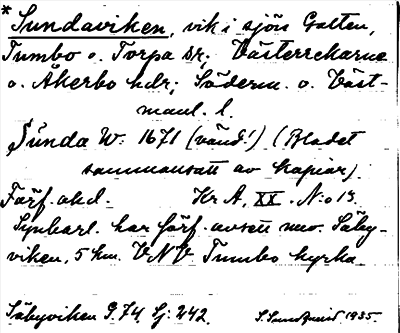 * Sundaviken, vik i sjön Gotten,
Tumbo o. Torpa sr; Västerrekarne
o. Åkerbo hdr; Söderm. o. Väst-
manl. l.
Sunda W: 1671 (vänd!) (Bladet
sammansatt av kopior)
Förf. okd. Kr A, XX. N:o 13.
Synbarl. har förf. avsett nuv. Säby-
viken, 5 km. VNV Tumbo kyrka.
Säbyviken G.74, Sj: 242. 1935